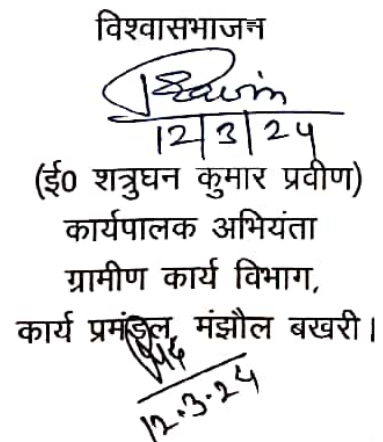 विश्वासभाजन
12/3/24
(ई0 शत्रुघन कुमार प्रवीण)
कार्यपालक अभियंता
ग्रामीण कार्य विभाग,
कार्य प्रमंडल, मंझौल बखरी।
12.3.24